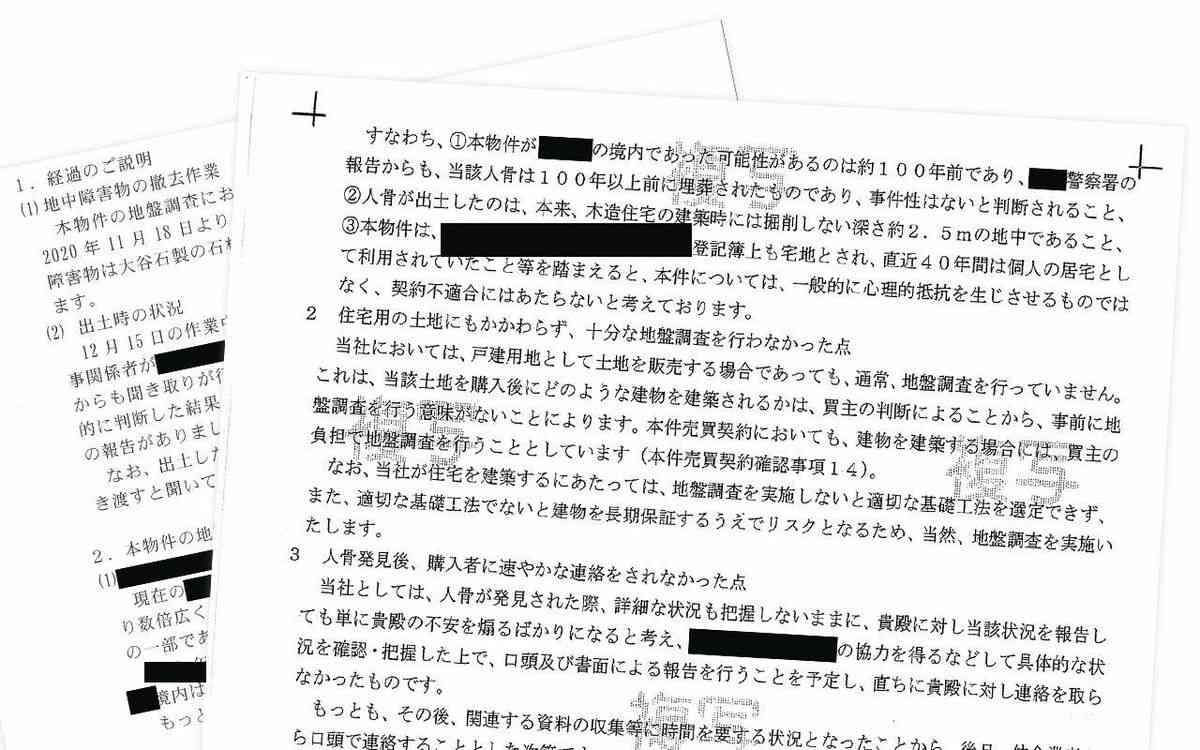 すなわち、①本物件が
の境内であった可能性があるのは約１００年前であり、
警察署の
報告からも、当該人骨は１００年以上前に埋葬されたものであり、事件性はないと判断されること、
②人骨が出土したのは、本来、木造住宅の建築時には掘削しない深さ約２．５ｍの地中であること、
③本物件は、
登記簿上も宅地とされ、直近４０年間は個人の居宅とし
て利用されていたこと等を踏まえると、本件については、一般的に心理的抵抗を生じさせるものでは
なく、契約不適合にはあたらないと考えております。
２　住宅用の土地にもかかわらず、十分な地盤調査を行わなかった点
当社においては、戸建用地として土地を販売する場合であっても、通常、地盤調査を行っていません。
これは、当該土地を購入後にどのような建物を建築されるかは、買主の判断によることから、事前に地
盤調査を行う意味がないことによります。本件売買契約においても、建物を建築する場合には、買主の
負担で地盤調査を行うこととしています（本件売買契約確認事項１４）。
なお、当社が住宅を建築するにあたっては、地盤調査を実施しないと適切な基礎工法を選定できず、
また、適切な基礎工法でないと建物を長期保証するうえでリスクとなるため、当然、地盤調査を実施い
たします。
３　人骨発見後、購入者に速やかな連絡をされなかった点
当社としては、人骨が発見された際、詳細な状況も把握しないままに、貴殿に対し当該状況を報告し
ても単に貴殿の不安を煽るばかりになると考え、
の協力を得るなどして具体的な状
況を確認・把握した上で、口頭及び書面による報告を行うことを予定し、直ちに貴殿に対し連絡を取ら
なかったものです。
もっとも、その後、関連する資料の収集等に時間を要する状況となったことから、後日、仲介業者か
ら口頭で連絡することとした次第です
複写
複写
複写
複写
１．経過のご説明
(1) 地中障害物の撤去作業
本物件の地盤調査にお
2020 年 11 月 18 日より
障害物は大谷石製の石材
ます。
(2) 出土時の状況
12 月 15 日の作業中
事関係者が
からも聞き取りが行
的に判断した結果
の報告がありまし
なお、出土した
き渡すと聞いて
２．本物件の地
(1)
現在の
り数倍広く
の一部であ
境内は
もっと